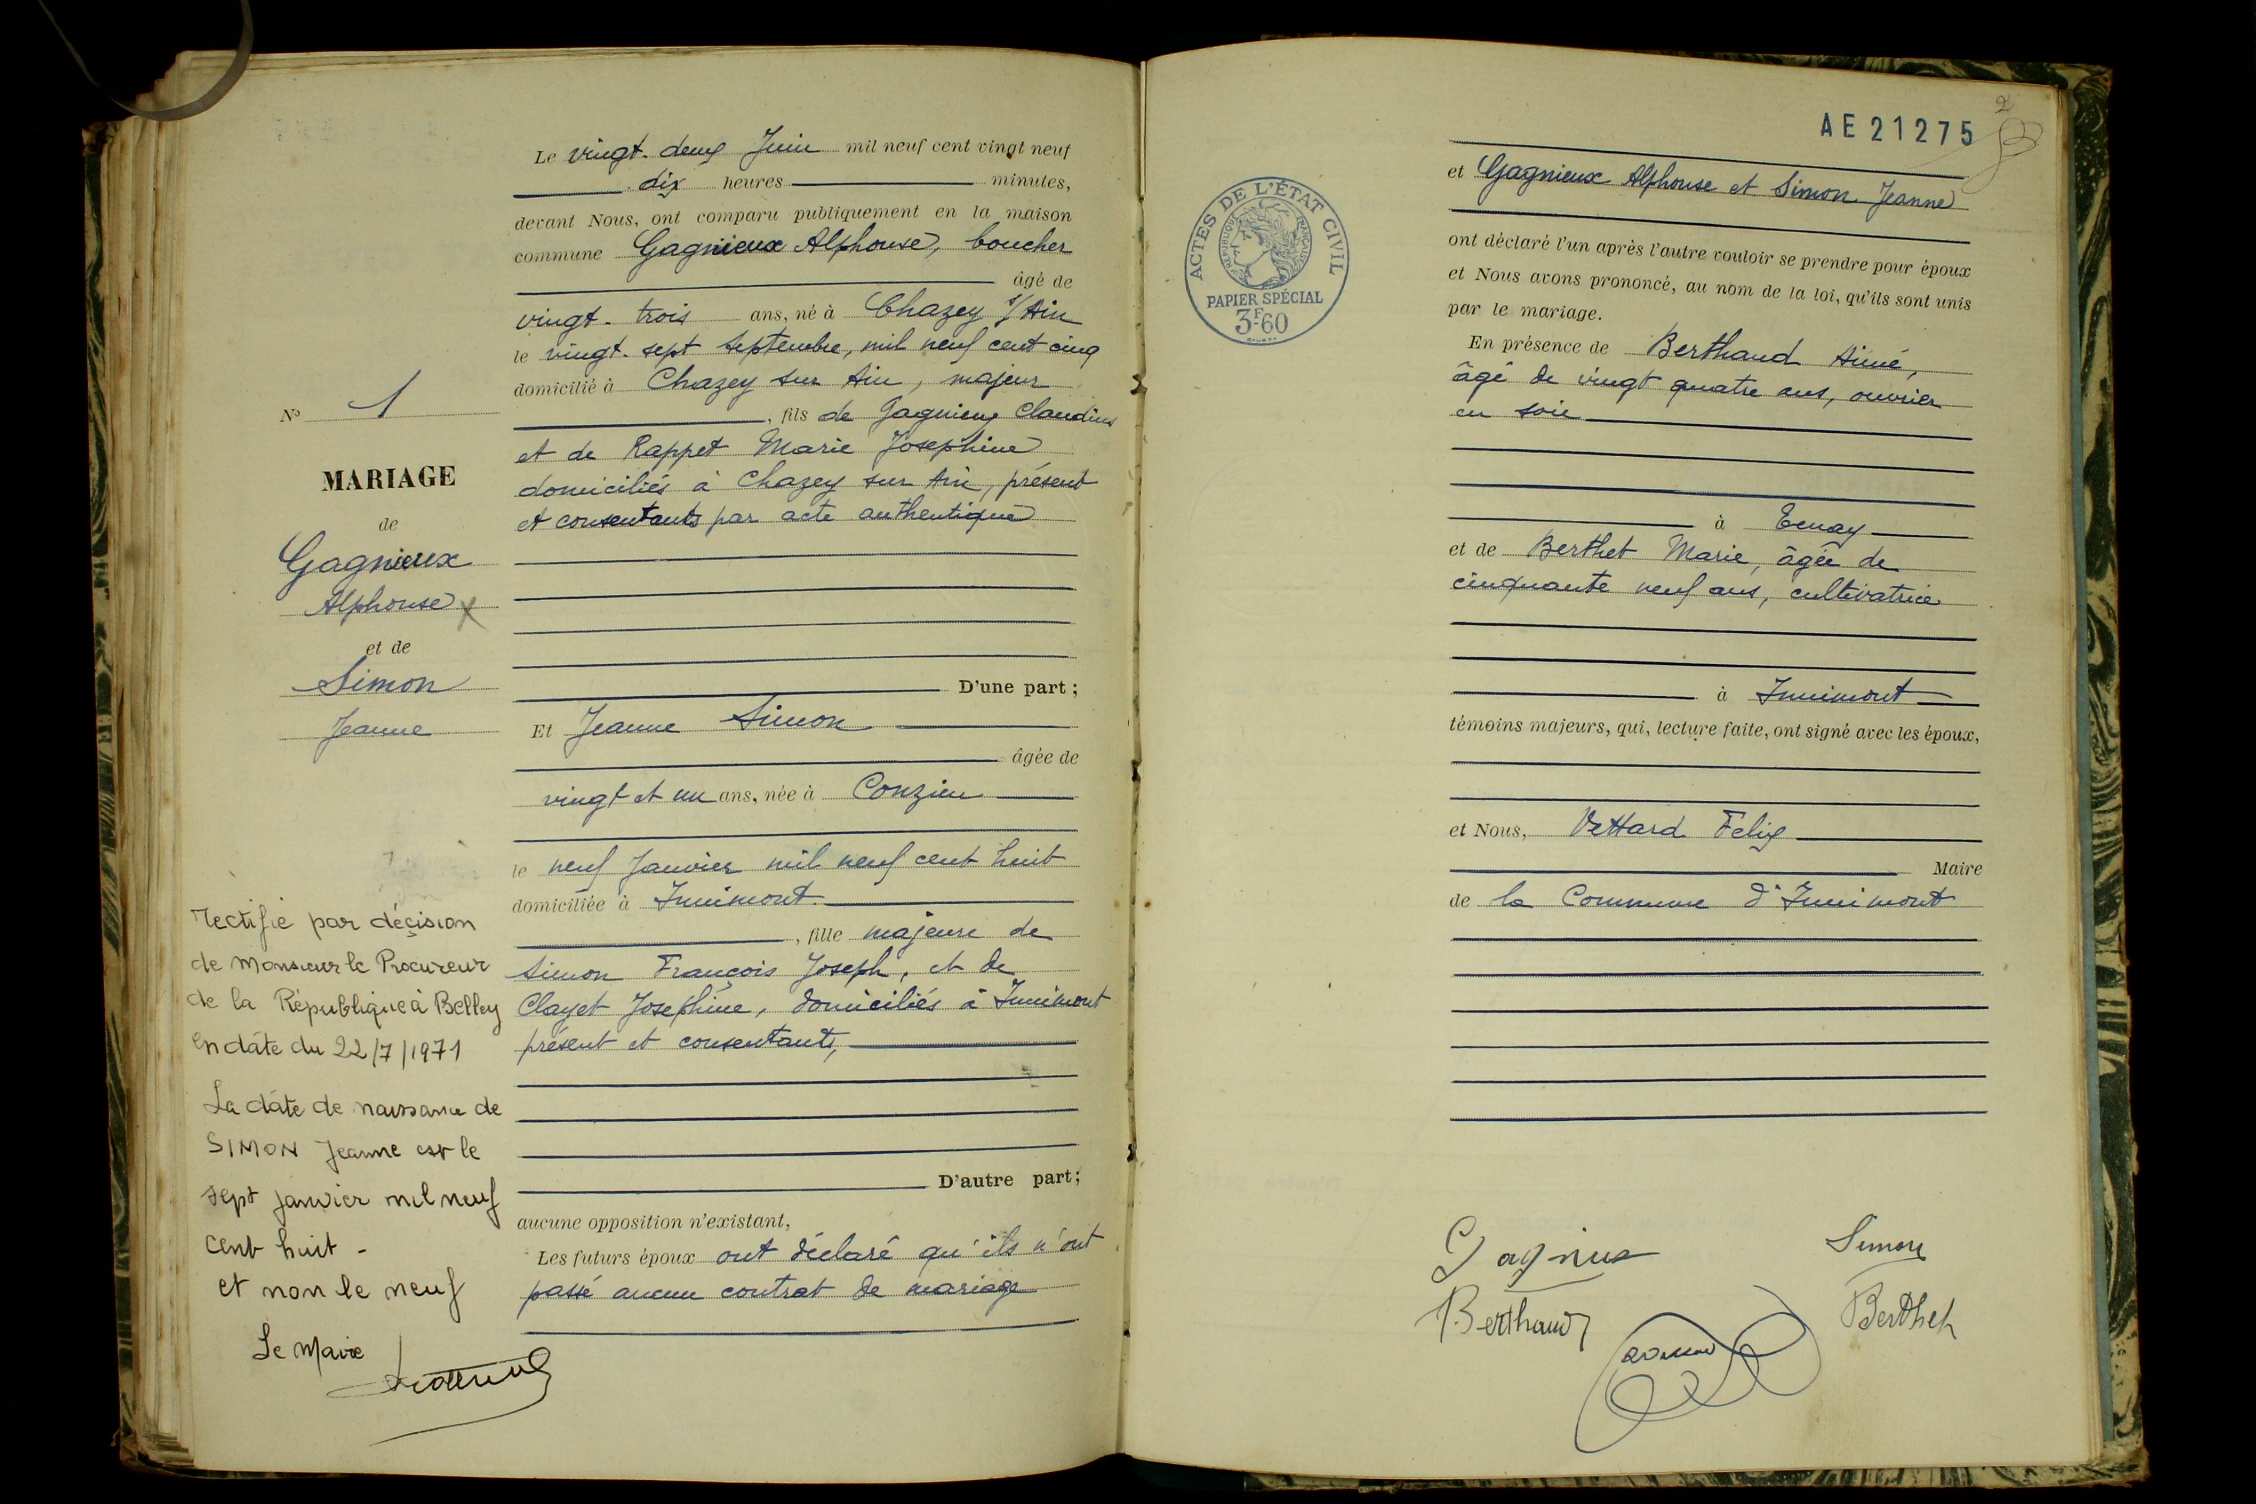 Le vingt-deux Juin mil neuf cent vingt neuf
dix heures minutes,
devant Nous, ont comparu publiquement en la maison
commune Gagnieux Alphonse, boucher
âgé de
vingt-trois ans, né à Chazey s/Ain
le vingt-sept septembre, mil neuf cent cinq
domicilié à Chazey sur Ain, majeur
, fils de Gagnieux Claudius
et de Rappet Marie Josephine
domiciliés à Chazey sur Ain, présent
et consentants par acte authentique
D'une part ;
Et Jeanne Simon
âgée de
vingt et un ans, née à Conzieu
le neuf Janvier mil neuf cent huit
domiciliée à Innimont
, fille majeure de
Simon François Joseph, et de
Clayet Josephine, domiciliés à Innimont
présent et consentants,
D'autre part ;
aucune opposition n'existant,
Les futurs époux ont déclaré qu'ils n'ont
passé aucun contrat de mariage
N° 1
MARIAGE
de
Gagnieux
Alphonse
et de
Simon
Jeanne
Rectifié par décision
de Monsieur le Procureur
de la République à Belley
en date du 22/7/1971
La date de naissance de
SIMON Jeanne est le
sept janvier mil neuf
cent huit -
et non le neuf
Le Maire
2
AE 21275
ACTES DE L'ÉTAT CIVIL
RÉPUBLIQUE FRANÇAISE
PAPIER SPÉCIAL
3F60
et Gagnieux Alphonse et Simon Jeanne
ont déclaré l'un après l'autre vouloir se prendre pour époux
et Nous avons prononcé, au nom de la loi, qu'ils sont unis
par le mariage.
En présence de Berthaud Aimé,
âgé de vingt quatre ans, ouvrier
en soie
à Tenay
et de Berthet Marie, âgée de
cinquante neuf ans, cultivatrice
à Innimont
témoins majeurs, qui, lecture faite, ont signé avec les époux,
et Nous, Vettard Felix
Maire
de la Commune d'Innimont
Gagnieux Simon
Berthaud Berthet